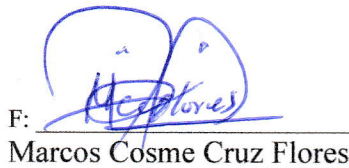 F:
Marcos Cosme Cruz Flores